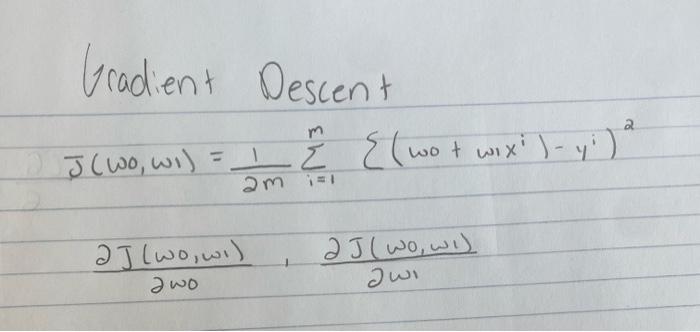 Gradient Descent
J(w0, w1) = 1/2m m Σ i=1 {(w0 + w1x^i) - y^i)^2
∂J(w0,w1)/∂w0 , ∂J(w0,w1)/∂w1